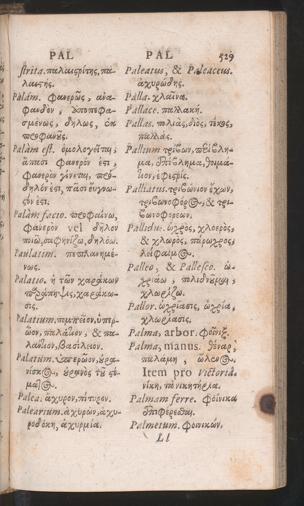 PAL PAL 529
strita. παλαιστρίτης, πα-
λαιστής.
Palàm. φανερῶς, ἀνα-
φανδὸν,
σμένως, δήλως, ἐκ
προφανοῦς.
Palàm est. ὁμολογεῖται,
ἅπασι φανερόν ἐστι,
φανερὸν γίνεται, πρό-
δηλόν ἐστι, πᾶσι
όν ἐστι.
Palàm facio. προφαίνω,
φανερὸν vel δῆλον
ποιῶ, σαφηνίζω, δηλόω.
Palatim. πεπλανημέ-
νως.
Palatio. ἡ τῶν χαράκων
χαράκω-
σις.
Palatium.
παλάτιον, & πα-
λάτιον, βασίλειον.
Palatum. ὑπερῷον, οὐρα-
νίσκος, οὐρανὸς τοῦ στό-
ματος.
Palea. ἄχυρον, πίτυρον.
Palearium. ἀχυρών, ἀχυ-
ροδόκη, ἀχυρμία.
Paleatus, & Paleaceus.
ἀχυρώδης.
Palla. χλαῖνα.
Pallace. παλλακή.
Pallas. πολιὰς, διὸς, τέκος,
παλλάς.
Pallium τρίβων, περίβλη-
μα, ἐπίβλημα, ἱμά-
τιον, ἐφεστρίς.
Palliatus. τριβώνιον ἔχων,
τριβωνοφόρος, & τρι-
βωνοφορῶν.
Pallidus. ὠχρὸς, χλοερὸς,
& χλωρὸς, πάρωχρος,

Palleo, & Pallesco. ὠ-
χριάω,
χλωρίζω.
Pallor. ὠχρίασις, ὠχρία,
χλωρίασις.
Palma, arbor. φοῖνιξ.
Palma, manus. θέναρ,
παλάμη,
Item pro victoria.
νίκη, τὰ νικητήρια.
Palmam ferre. φοίνικα
ἐπιφέρεσθαι.
Palmetum. φοινικών.
Ll